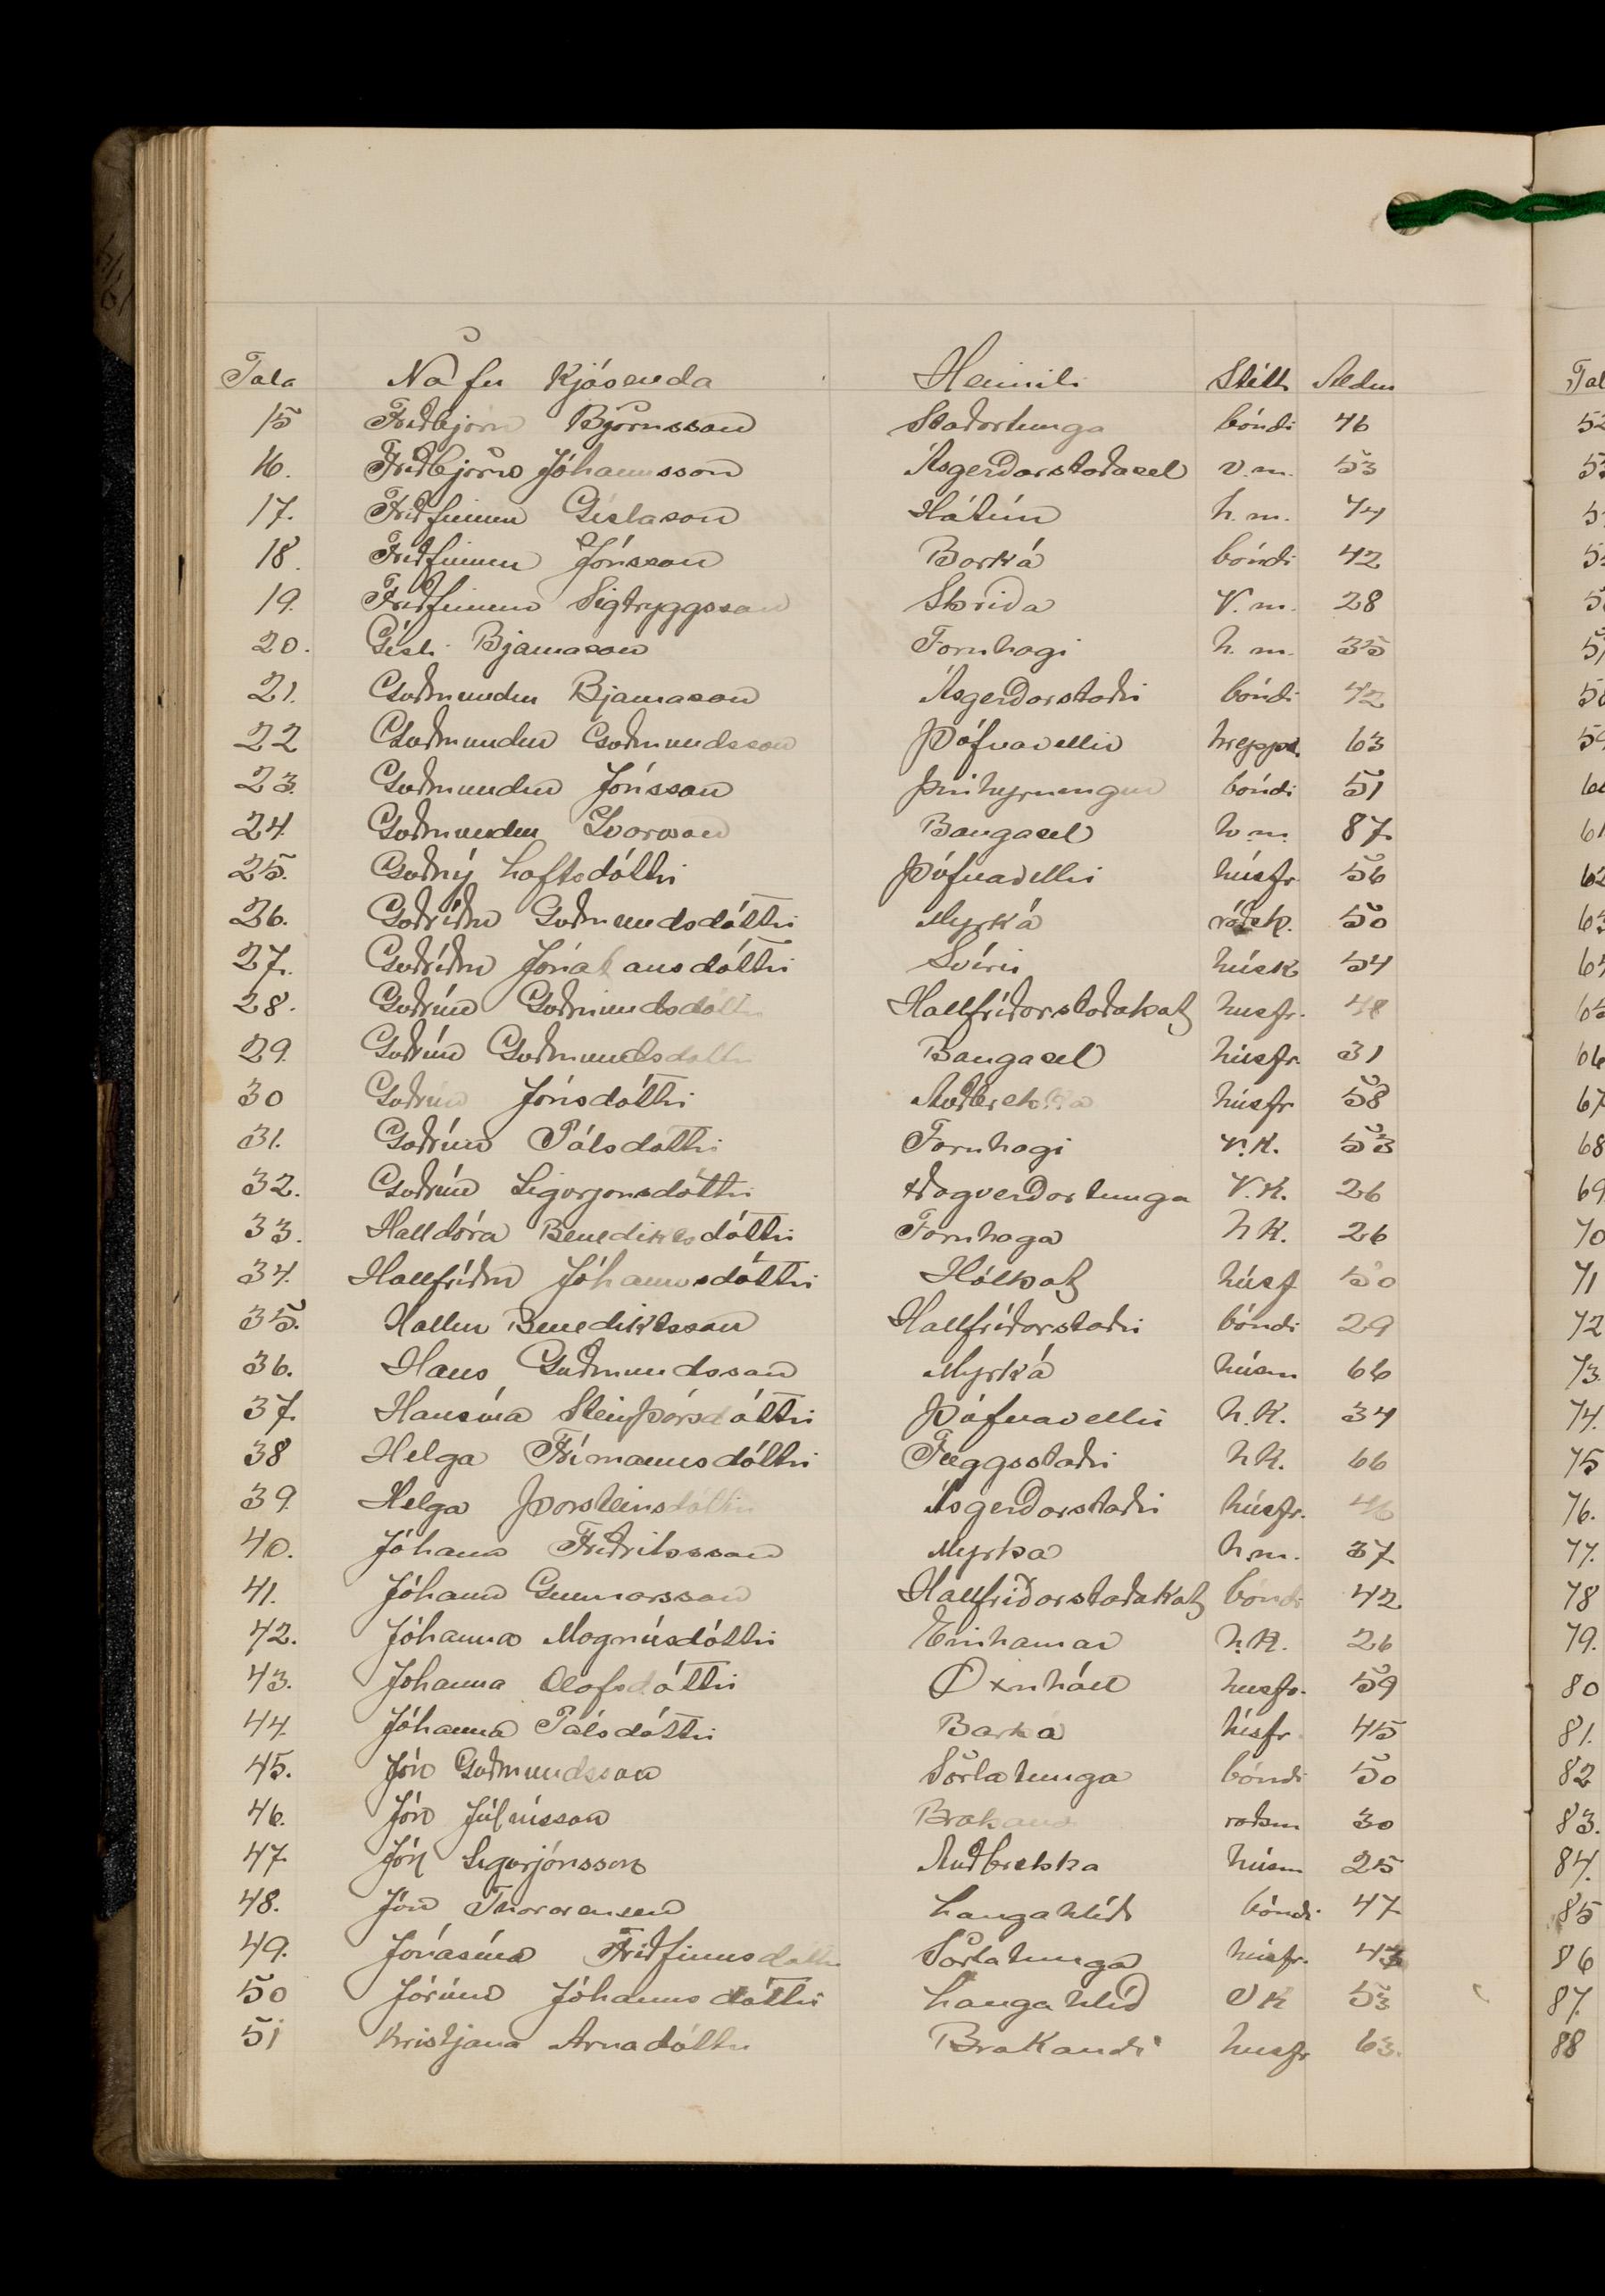 Tala Nöfn Kjósenda Heimili Stétt Aldur
15 Friðbjörn Björnsson Staðartunga bóndi 46
16. Friðbjörn Jóhannsson Ásgerðarstaðasel v.m. 53
17. Friðfinnur Gíslason Hátún h.m. 74
18. Friðfinnur Jónsson Barká bóndi 42
19. Friðfinnur Sigtryggsson Skriða V.m. 28
20. Gísli Bjarnason Fornhagi h.m. 35
21. Guðmundur Bjarnason Ásgerðarstaðir bóndi 42
22 Guðmundur Guðmundsson Þúfnavellir hreppst. 63
23. Guðmundur Jónsson Þríhyrningur bóndi 51
24. Guðmundur Baugasel h.m. 87
25. Guðný Loftsdóttir Þúfnavellir húsfr 56
26. Guðríður Guðmundsdóttir Myrká ráðsk. 50
27. Guðríður Jónatansdóttir húsk 54
28. Guðrún Guðmundsdóttir Hallfríðarstaðakot husfr. 48
29. Guðrún Guðmundsdóttir Baugasel húsfr. 31
30 Guðrún Jónsdóttir Auðbrekka húsfr 58
31. Guðrún Pálsdóttir Fornhagi V.K. 53
32. Guðrún Sigurjónsdóttir Dagverðartunga V.K. 26
33. Halldóra Benediktsdóttir Fornhaga h K. 26
34. Hallfríður Jóhannsdóttir Hólkot húsf 50
35. Hallur Benediktsson Hallfríðarstaðir bóndi 29
36. Hans Guðmundsson Myrká húsm 66
37. Hansína Steinþórsdóttir Þúfnavellir h.K. 34
38 Helga Frímannsdóttir Flöggustaðir h K. 66
39. Helga Þorsteinsdóttir Ásgerðarstaðir húsfr. 46
40. Jóhann Friðriksson Myrká h.m. 37
41. Jóhann Gunnarsson Hallfríðarstaðakot bóndi 42
42. Jóhanna Magnúsdóttir Einhamar h.K. 26
43. Jóhanna Olafsdóttir Öxnhóll husfr. 59
44. Jóhanna Pálsdóttir Barká húsfr. 45
45. Jón Guðmundsson Sörlatunga bóndi 50
46. Jón Júlíusson Brakandi raðsm 30
47 Jón Sigurjónsson Auðbrekka húsm 25
48. Jón Thorarensen Langahlíð bóndi 47
49. Jónasína Friðfinnsdóttir Sörlatunga húsfr. 43
50 Jórunn Jóhannsdóttir Langahlíð V K 53
51 Kristjana Arnadóttir Brakandi husfr 63.
Tal
60
61
62
66
67
68
69
70
71
72
73.
74.
75
76.
77.
78
79.
80
81.
82
83.
84.
85
86
87.
88